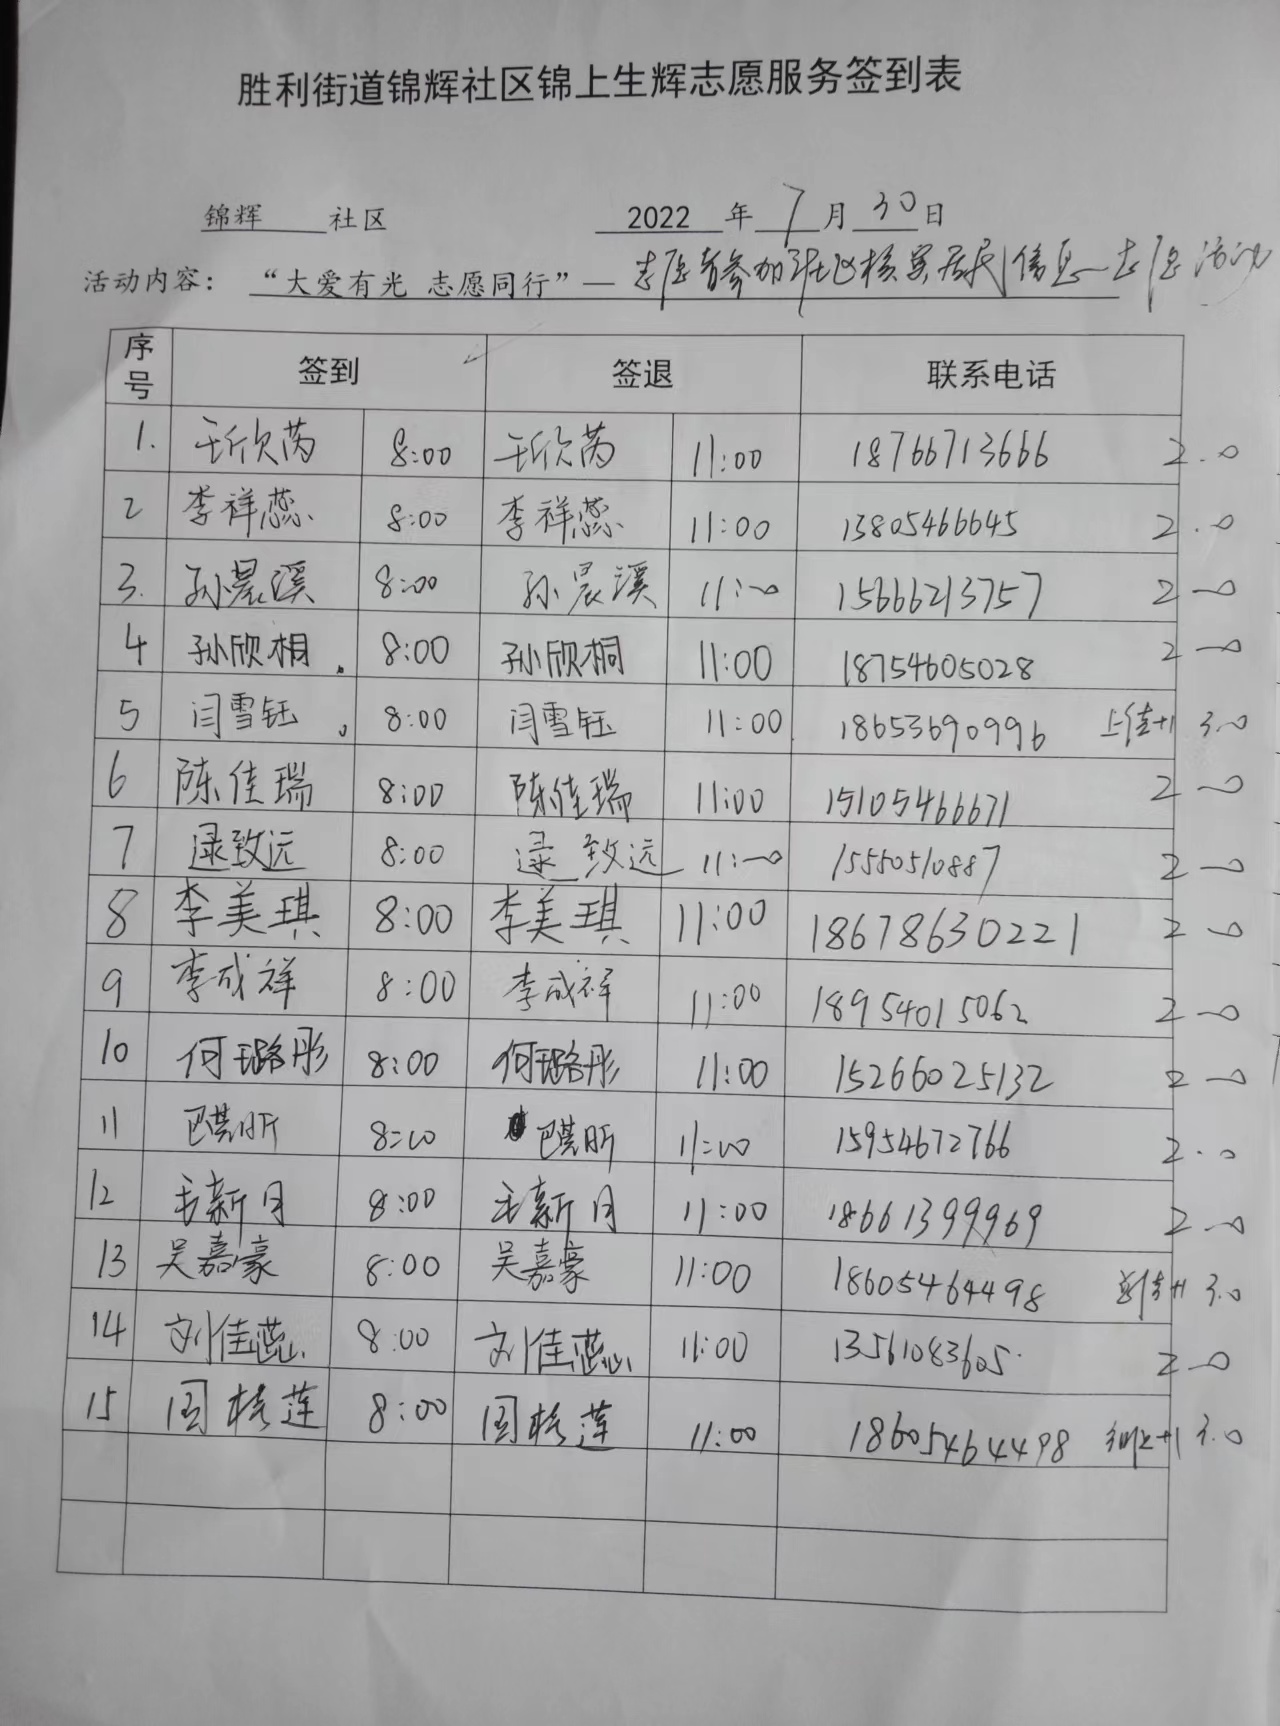 胜利街道锦辉社区锦上生辉志愿服务签到表
锦辉 社区 2022 年 7 月 30 日
活动内容： “大爱有光 志愿同行”— 志愿者参加社区核实居民信息—志愿活动
序号 签到 签退 联系电话
1. 王欣芮 8:00 王欣芮 11:00 18766713666 2.0
2 李祥蕊 8:00 李祥蕊 11:00 13805466645 2.0
3. 孙晨溪 8:00 孙晨溪 11:00 15666213757 2.0
4 孙欣桐 8:00 孙欣桐 11:00 18754605028 2.0
5 闫雪钰 8:00 闫雪钰 11:00 18653690996 +1 3.0
6 陈佳瑞 8:00 陈佳瑞 11:00 15105466671 2.0
7 逯致远 8:00 逯致远 11:00 15550510887 2.0
8 李美琪 8:00 李美琪 11:00 18678630221 2.0
9 李成祥 8:00 李成祥 11:00 18954015062 2.0
10 何璐彤 8:00 何璐彤 11:00 15266025132 2.0
11 巴淇昕 8:00 巴淇昕 11:00 15954672766 2.0
12 毛新月 8:00 毛新月 11:00 18661399969 2.0
13 吴嘉豪 8:00 吴嘉豪 11:00 18605464498 +1 3.0
14 刘佳蕊 8:00 刘佳蕊 11:00 13561083605 2.0
15 周桂莲 8:00 周桂莲 11:00 18605464498 +1 3.0